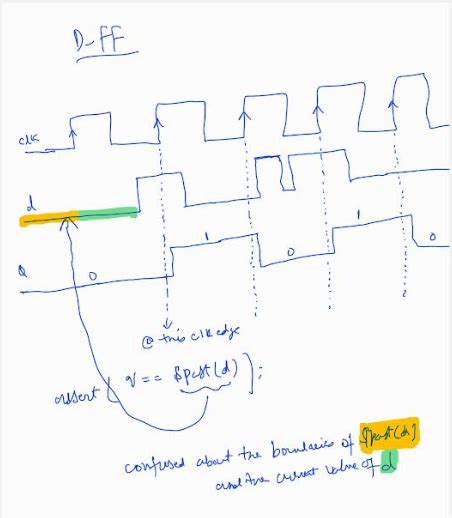 D-FF
clk
d
Q
0
1
0
1
0
@ this clk edge
assert ( q == $past(d) );
confused about the boundaries of $past(d)
and the current value of d